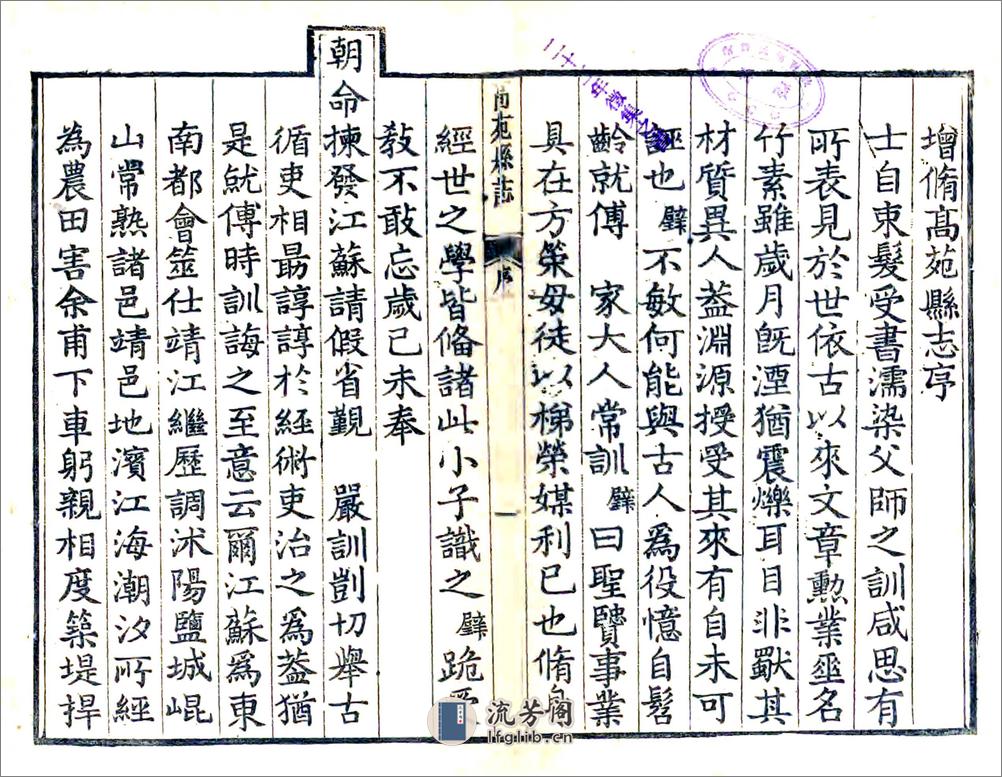 增脩高苑縣志序
士自束髮受書濡染父師之訓咸思有
所表見於世依古以來文章勳業垂名
竹素雖歲月旣湮猶震爍耳目非獸其
材質異人葢淵源授受其來有自未可
誣也璧不敏何能與古人爲役憶自髫
齡就傅 家大人常訓璧曰聖賢事業
具在方策毋徒以梯榮媒利已也脩身
高苑縣志 序 一
經世之學皆備諸此小子識之璧跪
敎不敢忘歲己未奉
朝命揀發江蘇請假省覲 嚴訓剴切舉古
循吏相勗諄諄於經術吏治之爲葢猶
是就傅時訓誨之至意云爾江蘇爲東
南都會筮仕靖江繼歷調沭陽鹽城崐
山常熟諸邑靖邑地濱江海潮汐所經
為農田害余甫下車躬親相度築堤捍
流芳阁
lfglib.cn